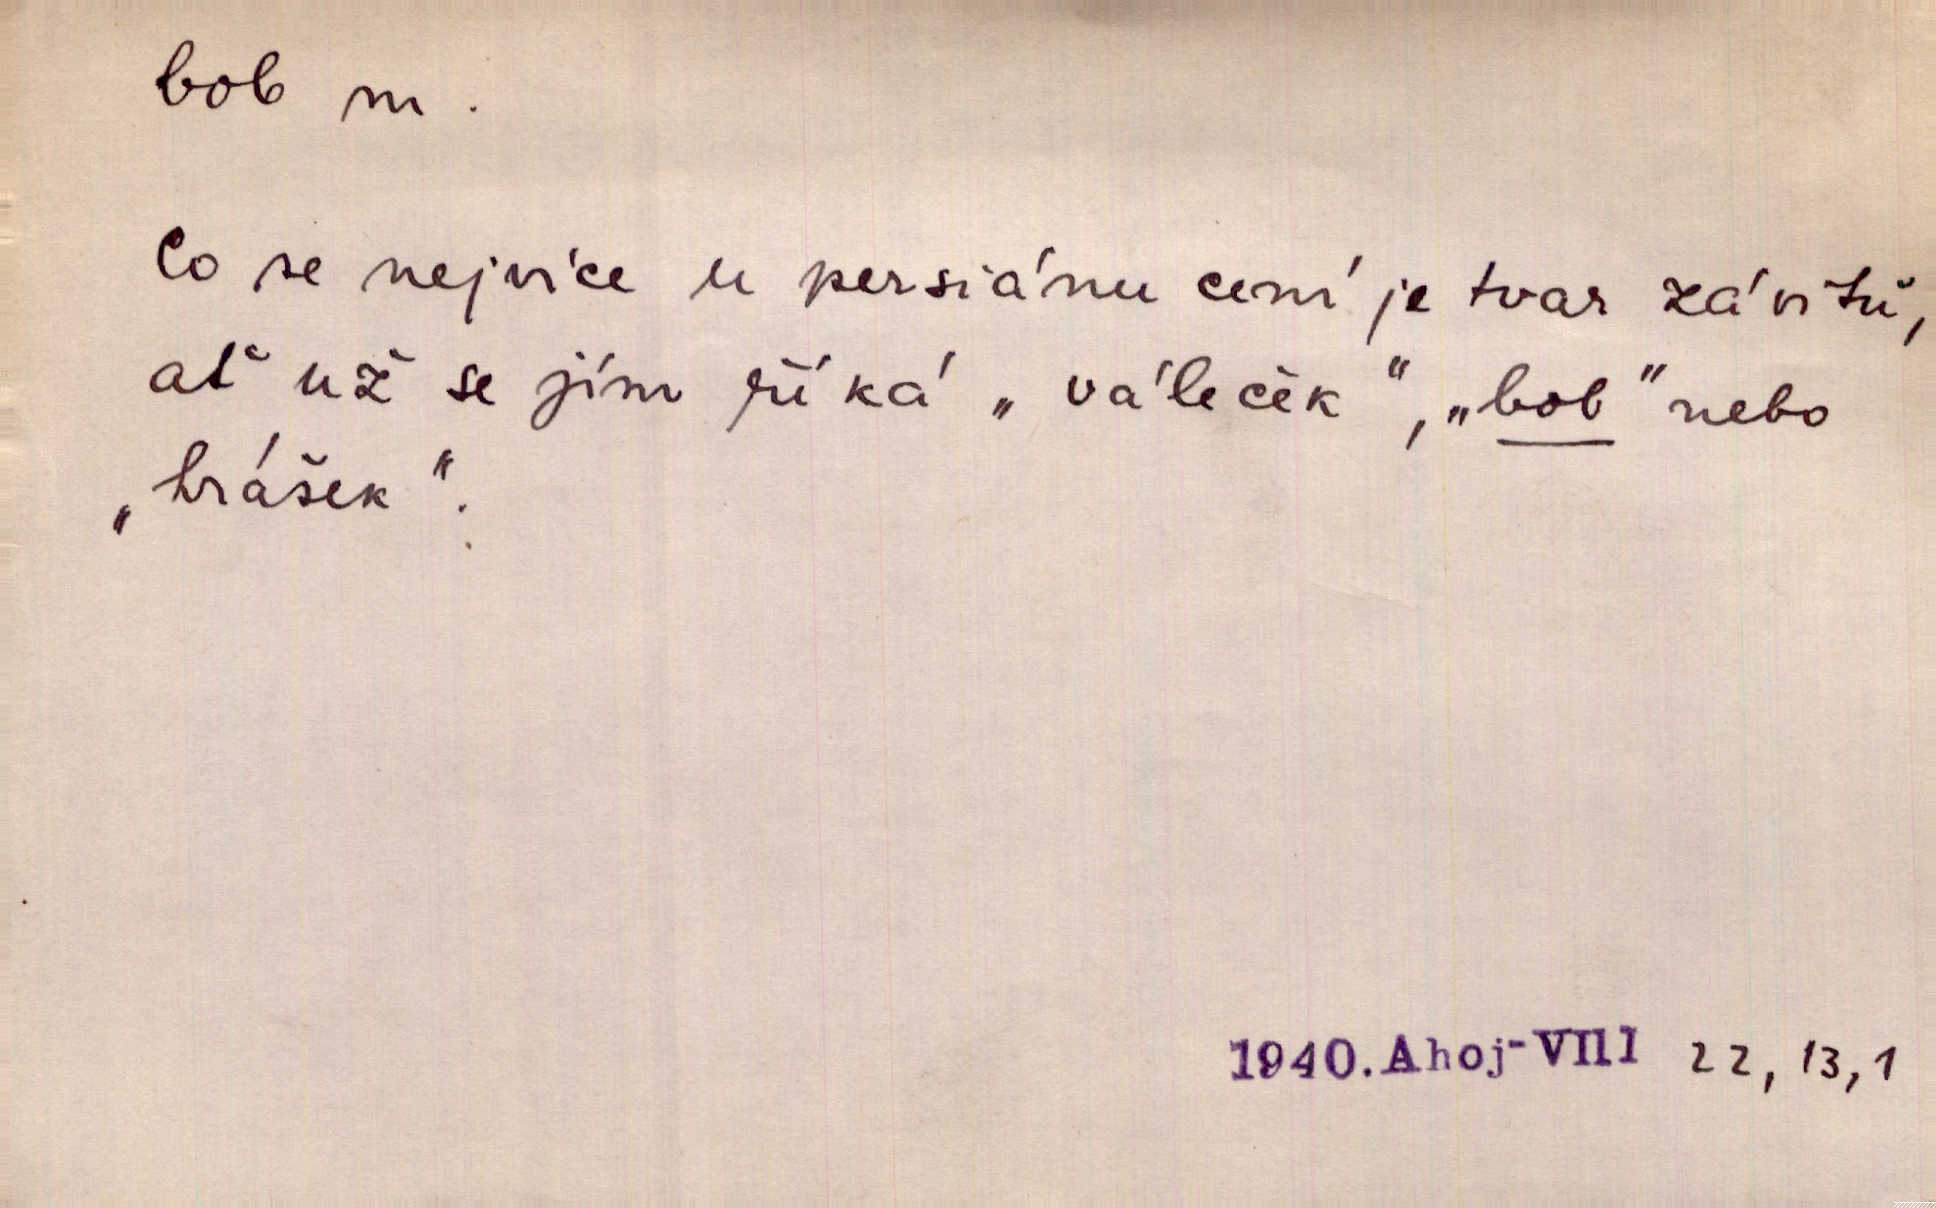 bob m.
Co se nejvíce u persiánu cení je tvar závitů,
ať už se jím říká „váleček“, „bob“ nebo
„hrášek“.
1940. Ahoj-VIII 22, 13, 1